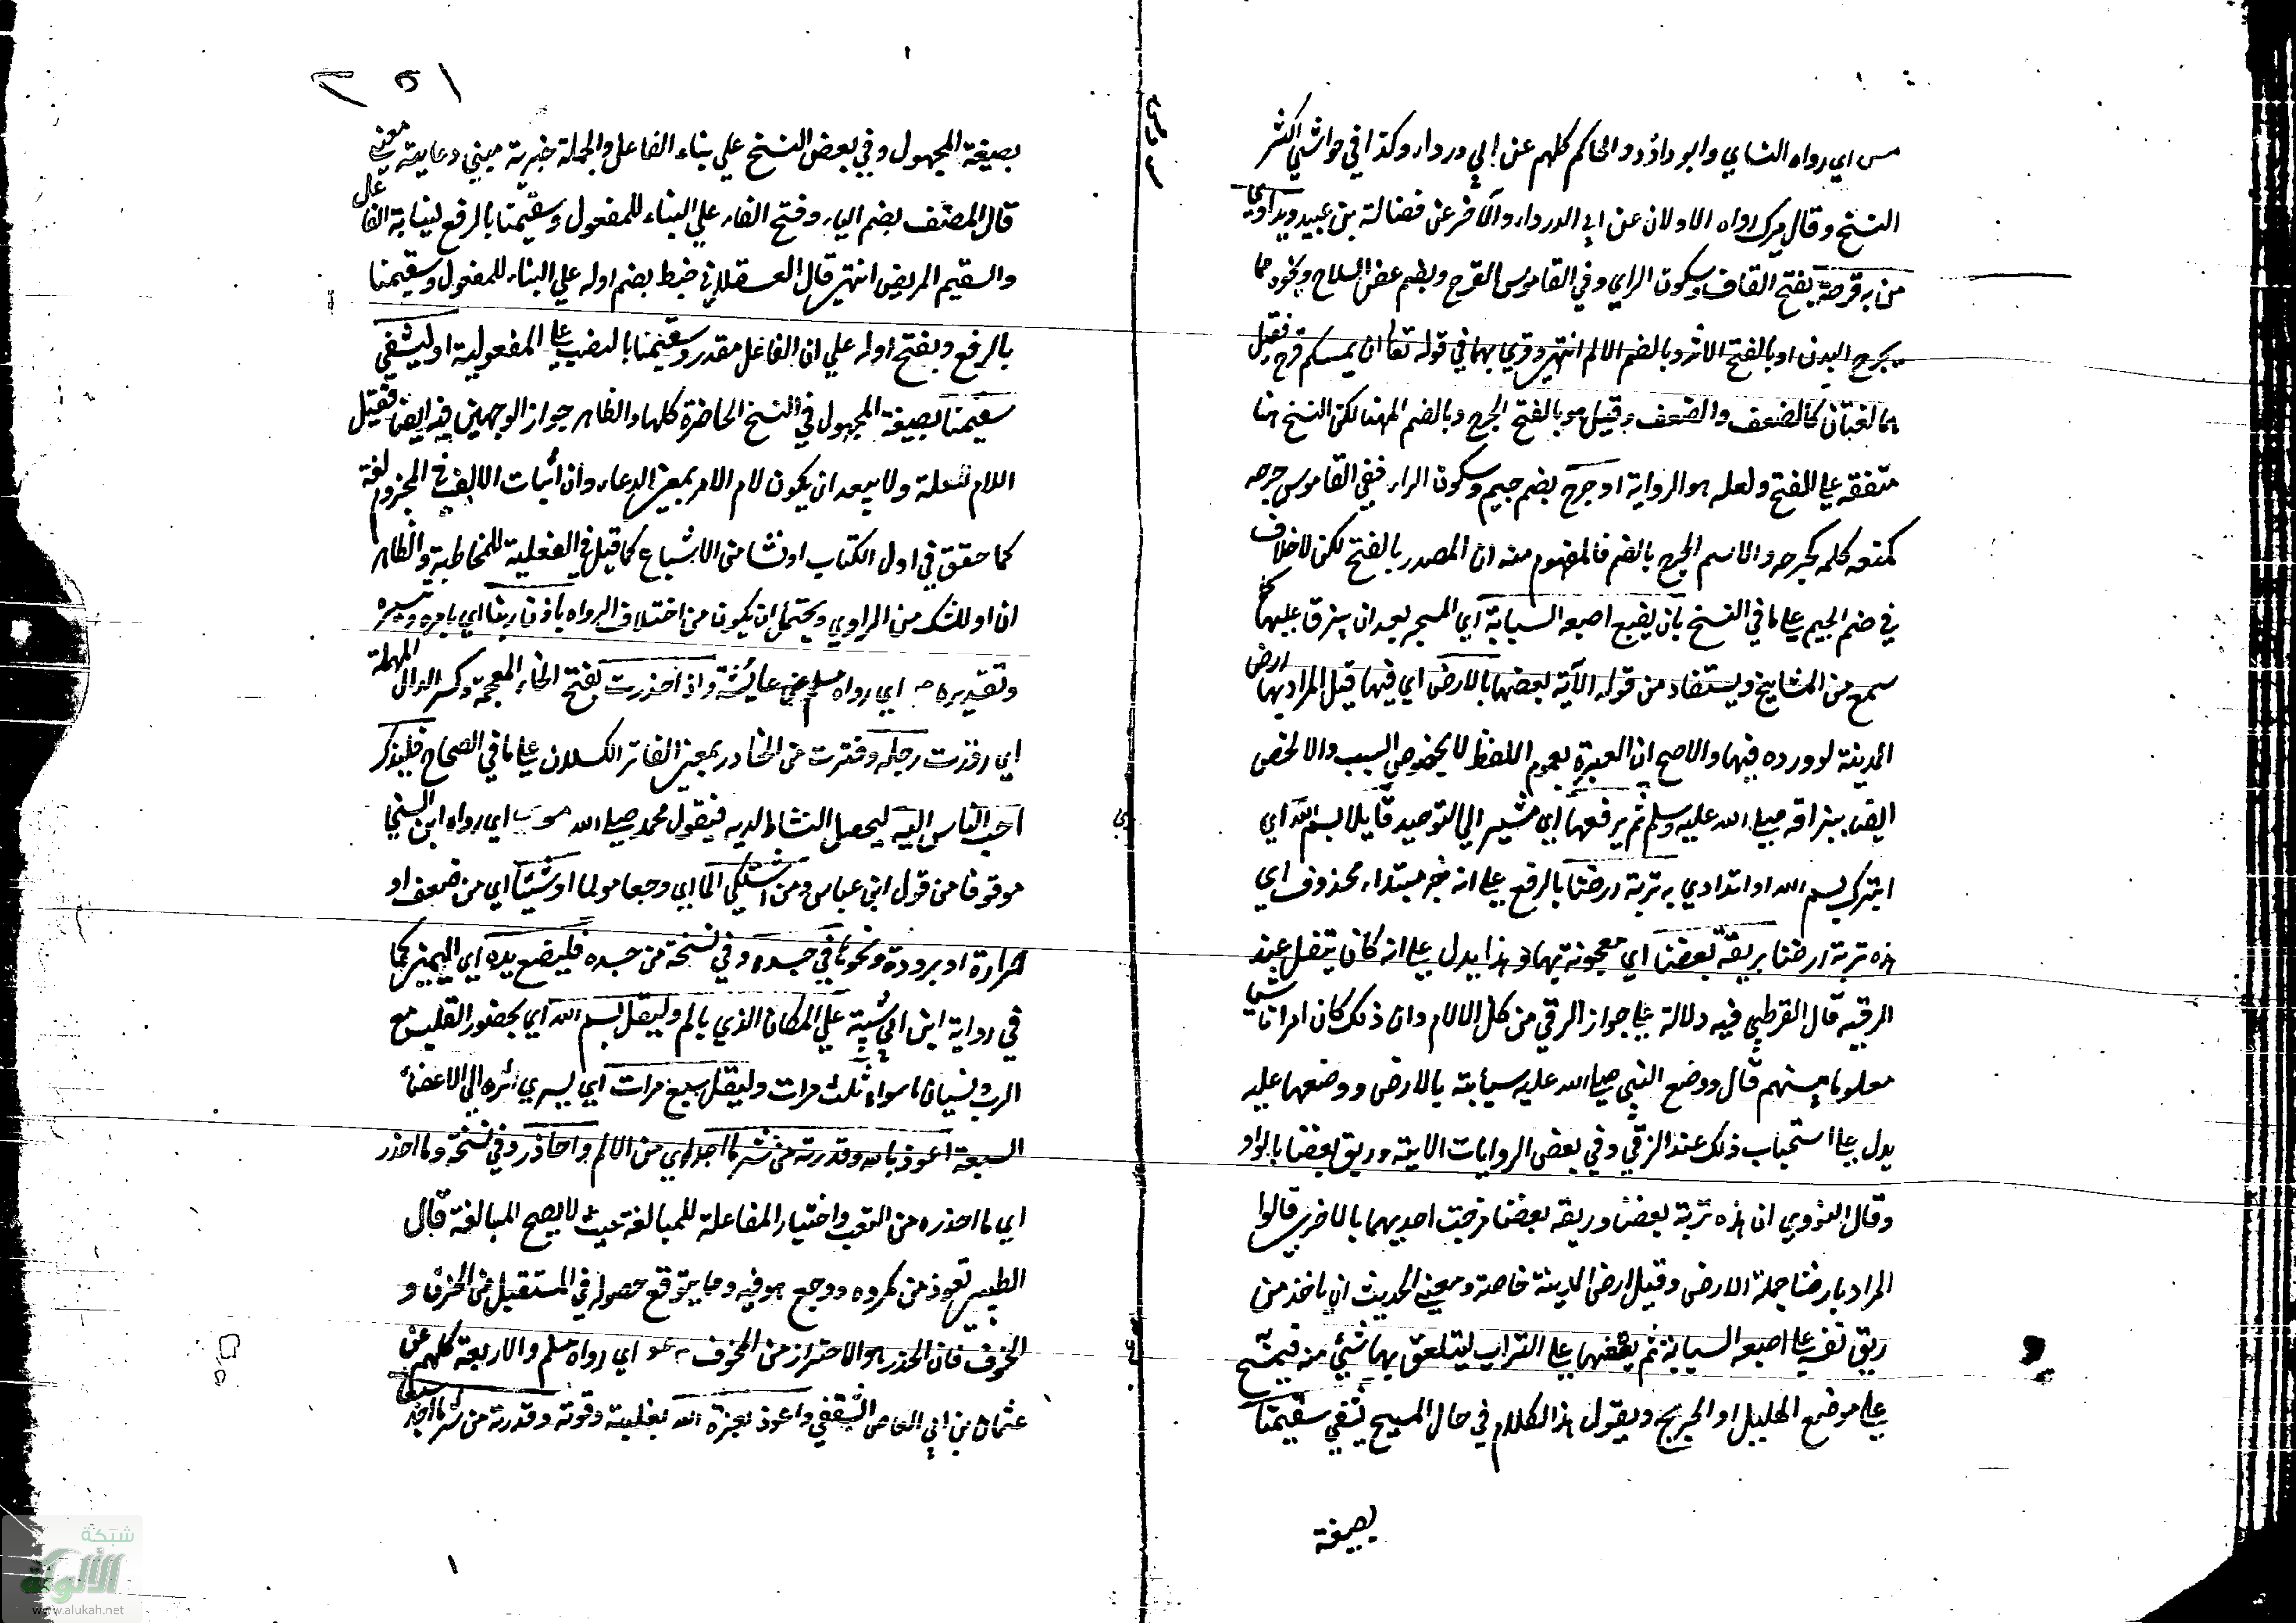 مس اي رواه النساي وابو داؤد والحاكم كلهم عن ابي درداء وكذا في حواشي اكثر
النسخ وقال ميرك رواه الاولان عن ابي الدرداء والآخر عن فضالة بن عبيد ويداوي
من به قرحة بفتح القاف وسكون الراي وفي القاموس القرح وبضم عض السلاح ونحوه مما
يجرح البدن او بالفتح الاثر وبالضم الالم انتهى وقري بهما في قوله تعا ان يمسسكم قرح فقيل
هما لغتان كالضعف والضعف وقيل هو بالفتح الجرح وبالضم المهنا لكن النسخ هنا
متفقه علي الفتح ولعله هو الرواية او جرح بضم جيم وسكون الراء ففي القاموس جرحه
كمنعه كلمه كجرحه والاسم الجرح بالضم فالمفهوم منه ان المصدر بالفتح لكن لا خلاف
في ضم الجيم علي ما في النسخ بان يضع اصبعه السبابة اي المسبحه بعد ان يبزق عليها كما
سمع من المشايخ ويستفاد من قوله الآتيه بعضها بالارض اي فيها قيل المراد بها ارض
المدينة لوورده فيها والاصح ان العبرة بعموم اللفظ لا بخصوص السبب والا لخص
ايضا ببزاقه صلي الله عليه وسلم ثم يرفعها اي مشيرا الي التوحيد قايلا بسم الله اي
اتبرك بسم الله او اتداوي به تربة ارضنا بالرفع علي انه خبر مبتداء محذوف اي
هذه تربة ارضنا بريقة بعضنا اي معجونة بها وهذا يدل علي انه كان يتفل عند
الرقيه قال القرطبي فيه دلالة علي جواز الرقي من كل الالام وان ذلك كان امرا فاشيا
معلوما بينهم قال ووضع النبي صلي الله عليه سبابته بالارض ووضعها عليه
يدل علي استحباب ذلك عند الرقي وفي بعض الروايات الاتية وريق بعضنا بالواو
وقال النووي ان هذه تربة بعضنا وريقه بعضنا مزجت احديهما بالاخري قالوا
المراد بارضنا جملة الارض وقيل ارض المدينة خاصة ومعني الحديث ان ياخذ من
ريق نفسه علي اصبعه السبابة ثم يضعها علي التراب ليتعلق بها شيئ منه فيمسح به
علي موضع العليل او الجريح ويقول هذا الكلام في حال المسح يشفي سقيمنا
بصيغة
بصيغة المجهول وفي بعض النسخ علي بناء الفاعل والجملة خبرية مبني دعايية معني
قال المصنف بضم الياء وفتح الفاء علي البناء للمفعول وسقيمنا بالرفع لنيابة الفاعل
والسقيم المريض انتهى قال العسقلاني ضبط بضم اوله علي البناء للمفعول وسقيمنا
بالرفع وبفتح اوله علي ان الفاعل مقدر وسقيمنا بالنصب علي المفعولية او ليشفي
سقيمنا بصيغة المجهول في النسخ الحاضرة كلها والظاهر جواز الوجهين فيه ايضا فقيل
اللام للعلة ولا يبعد ان يكون لام الامر بمعني الدعاء وان اثبات الالف في المجزوم لغة
كما حقق في اول الكتاب او نشا من الاشباع كما قيل في الفعلية للمخاطبة والظاهر
ان او للشك من الراوي ويحتمل ان يكون من اختلاف الرواه باذن ربنا اي بامره وتيسيره
وتقديره م اي رواه مسلم عن عائشة واذا خدرت بفتح الخاء المعجمة وكسر الدال المهملة
اي رقدت رجله وفترت من الخادر بمعني الفاتر الكسلان علي ما في الصحاح فليذكر
احب الناس اليه ليحصل النشاط لديه فيقول محمد صلي الله مو ي اي رواه ابن السني
موقوفا من قول ابن عباس ومن اشتكي الما اي وجعا مولما او شيئا اي من ضعف او
حرارة او برودة ونحوها في جسده وفي نسخة من جسده فليضع يده اي اليمني كما
في رواية ابن ابي شيبة علي المكان الذي يالم وليقل بسم الله اي بحضور القلب مع
الرب نسيان ما سواه ثلث مرات وليقل سبع مرات اي ليسري اثره الي الاعضاء
السبعة اعوذ بالله وقدرته من شر ما اجد اي من الالم واحاذر وفي نسخة وما احذر
اي ما احذره من التعب واختيار المفاعلة للمبالغة حيث لا يصح المبالغة قال
الطيبي تعوذ من مكروه ووجع هو فيه ومما يتوقع حصوله في المستقبل من الحزن و
الخوف فان الحذر هو الاحتراز من المخوف م عه اي رواه مسلم والاربعة كلهم عن
عثمان بن ابي العاص الثقفي واعوذ بعزة الله بغلبته وقوته وقدرته من شر ما اجد
شبكة
الألوكة
www.alukah.net